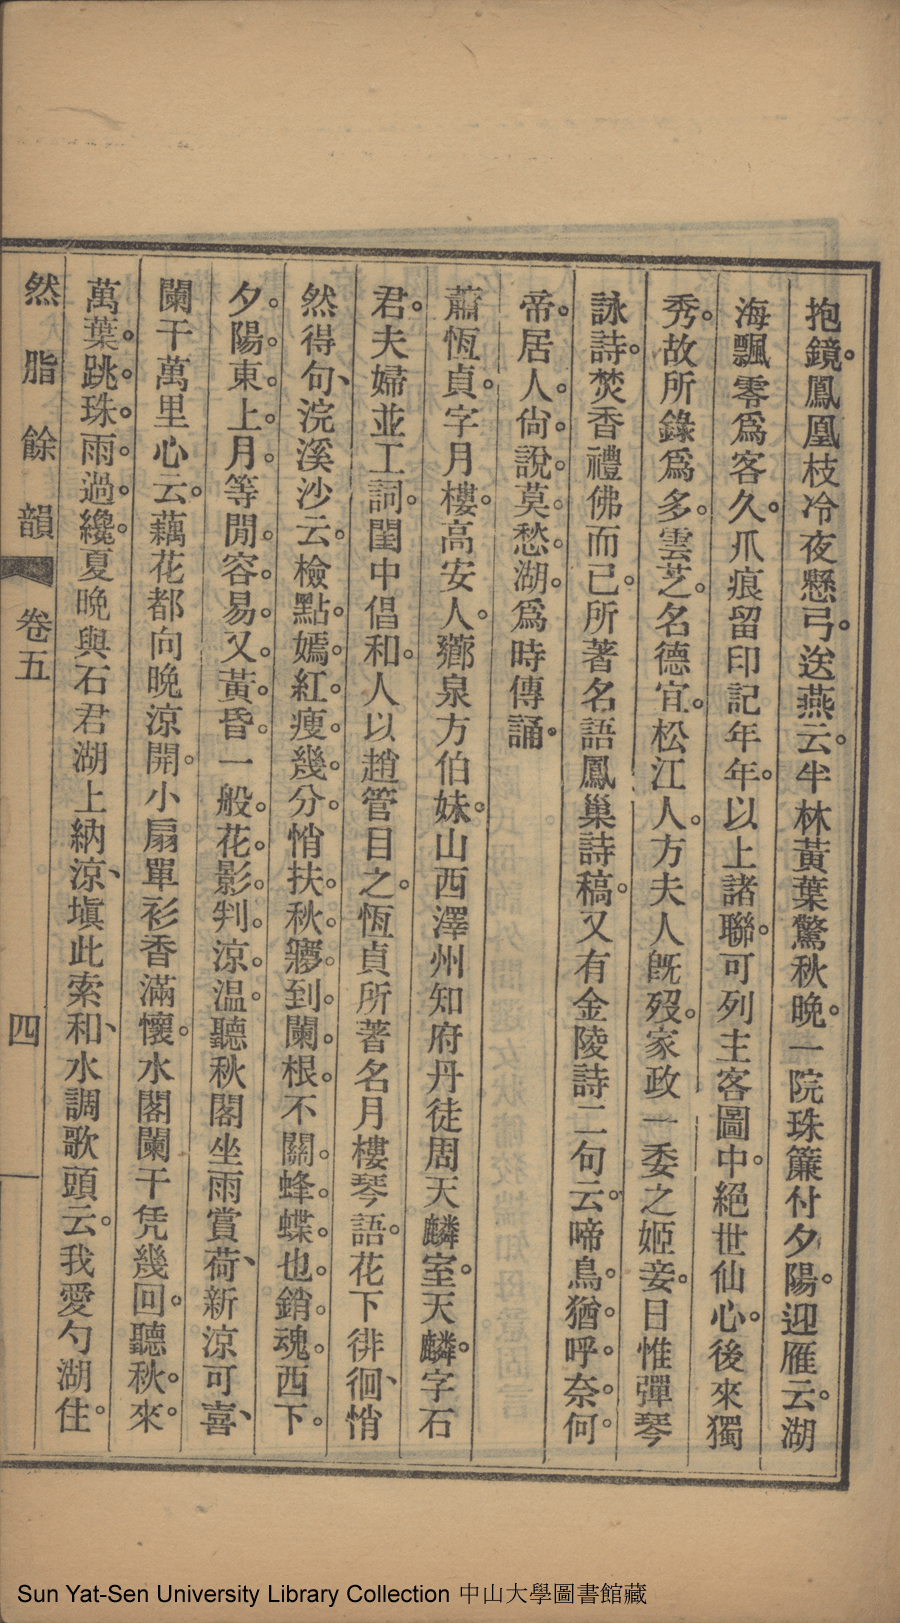 抱鏡。鳳凰枝冷夜懸弓。送燕云。半林黃葉驚秋晚。一院珠簾付夕陽。迎雁云。湖
海飄零爲客久。爪痕留印記年年。以上諸聯。可列主客圖中。絕世仙心。後來獨
秀。故所錄爲多。雲芝。名德宜。松江人。方夫人旣歿。家政一委之姬妾。日惟彈琴
詠詩。焚香禮佛而已。所著名語鳳巢詩稿。又有金陵詩二句云。啼鳥。猶。呼。奈。何。
帝。居。人。尙。說。莫。愁。湖。爲時傳誦。
蕭恆貞。字月樓。高安人。薌泉方伯妹。山西澤州知府丹徒周天麟室。天麟。字石
君。夫婦並工詞。閨中倡和。人以趙管目之。恆貞所著名月樓琴語。花下徘徊、悄
然得句、浣溪沙云。檢點。嫣。紅。瘦。幾。分。悄扶。秋。夢。到。闌。根。不關。蜂。蝶。也。銷。魂。西下。
夕。陽。東。上。月。等閒。容。易。又。黃。昏。一般。花。影。判。涼。温。聽秋閣坐雨賞荷、新涼可喜、
闌干萬里心云。藕花都向晚涼開。小扇單衫香滿懷。水閣闌干凭幾回。聽秋。來。
萬葉。跳。珠。雨。過。纔。夏晚與石君湖上納涼、塡此索和、水調歌頭云。我愛勺湖住。
然脂餘韻 卷五 四
Sun Yat-Sen University Library Collection 中山大學圖書館藏